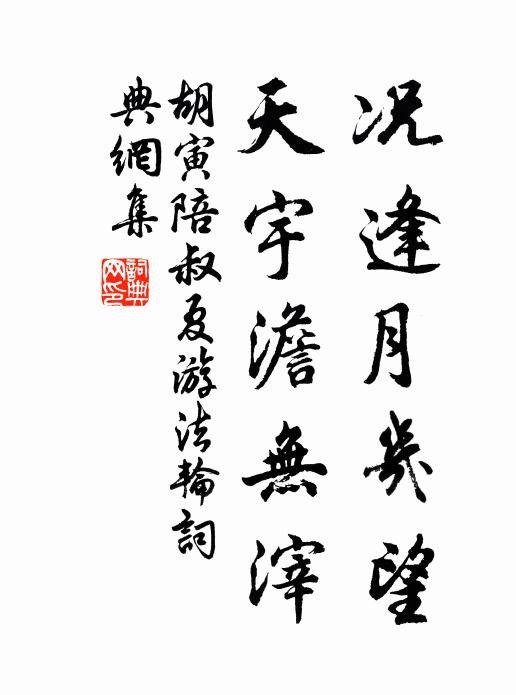 况逢月幾望
天宇澹無滓
胡寅陪叔夏游法輪詞
典網集
詞典
网印